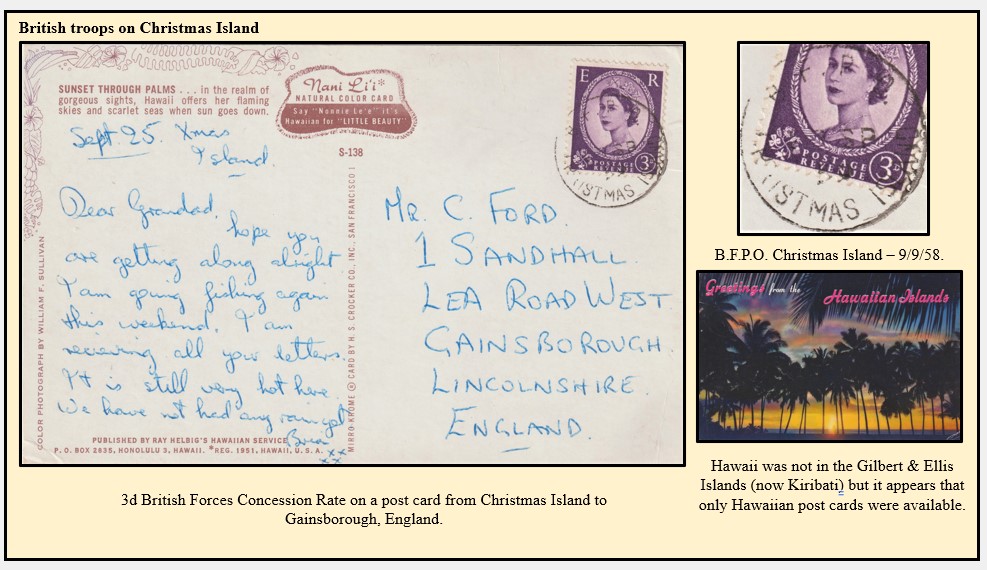 British troops on Christmas Island
SUNSET THROUGH PALMS . . . in the realm of
gorgeous sights, Hawaii offers her flaming
skies and scarlet seas when sun goes down.
Nani Li'i*
NATURAL COLOR CARD
Say "Nonnie Le'e" it's
Hawaiian for "LITTLE BEAUTY"
S-138
Sept 25. Xmas
Island.
Dear Grandad,
hope you
are getting along alright
I am going fishing again
this weekend. I am
recieving all your letters.
It is still very hot here.
We have not had any rain yet
Brian
xx
xx
COLOR PHOTOGRAPH BY WILLIAM F. SULLIVAN
MIRRO-KROME ® CARD BY H. S. CROCKER CO., INC., SAN FRANCISCO 1
PUBLISHED BY RAY HELBIG'S HAWAIIAN SERVICE
P. O. BOX 2835, HONOLULU 3, HAWAII. *REG. 1951, HAWAII, U. S. A.
MR. C. FORD
1 SANDHALL.
LEA ROAD WEST.
GAINSBOROUGH.
LINCOLNSHIRE
ENGLAND.
E R
POSTAGE
REVENUE
3D
ISTMAS IS
3d British Forces Concession Rate on a post card from Christmas Island to
Gainsborough, England.
E R
POSTAGE
REVENUE
3D
ISTMAS IS
B.F.P.O. Christmas Island – 9/9/58.
Greetings from the Hawaiian Islands
Hawaii was not in the Gilbert & Ellis
Islands (now Kiribati) but it appears that
only Hawaiian post cards were available.